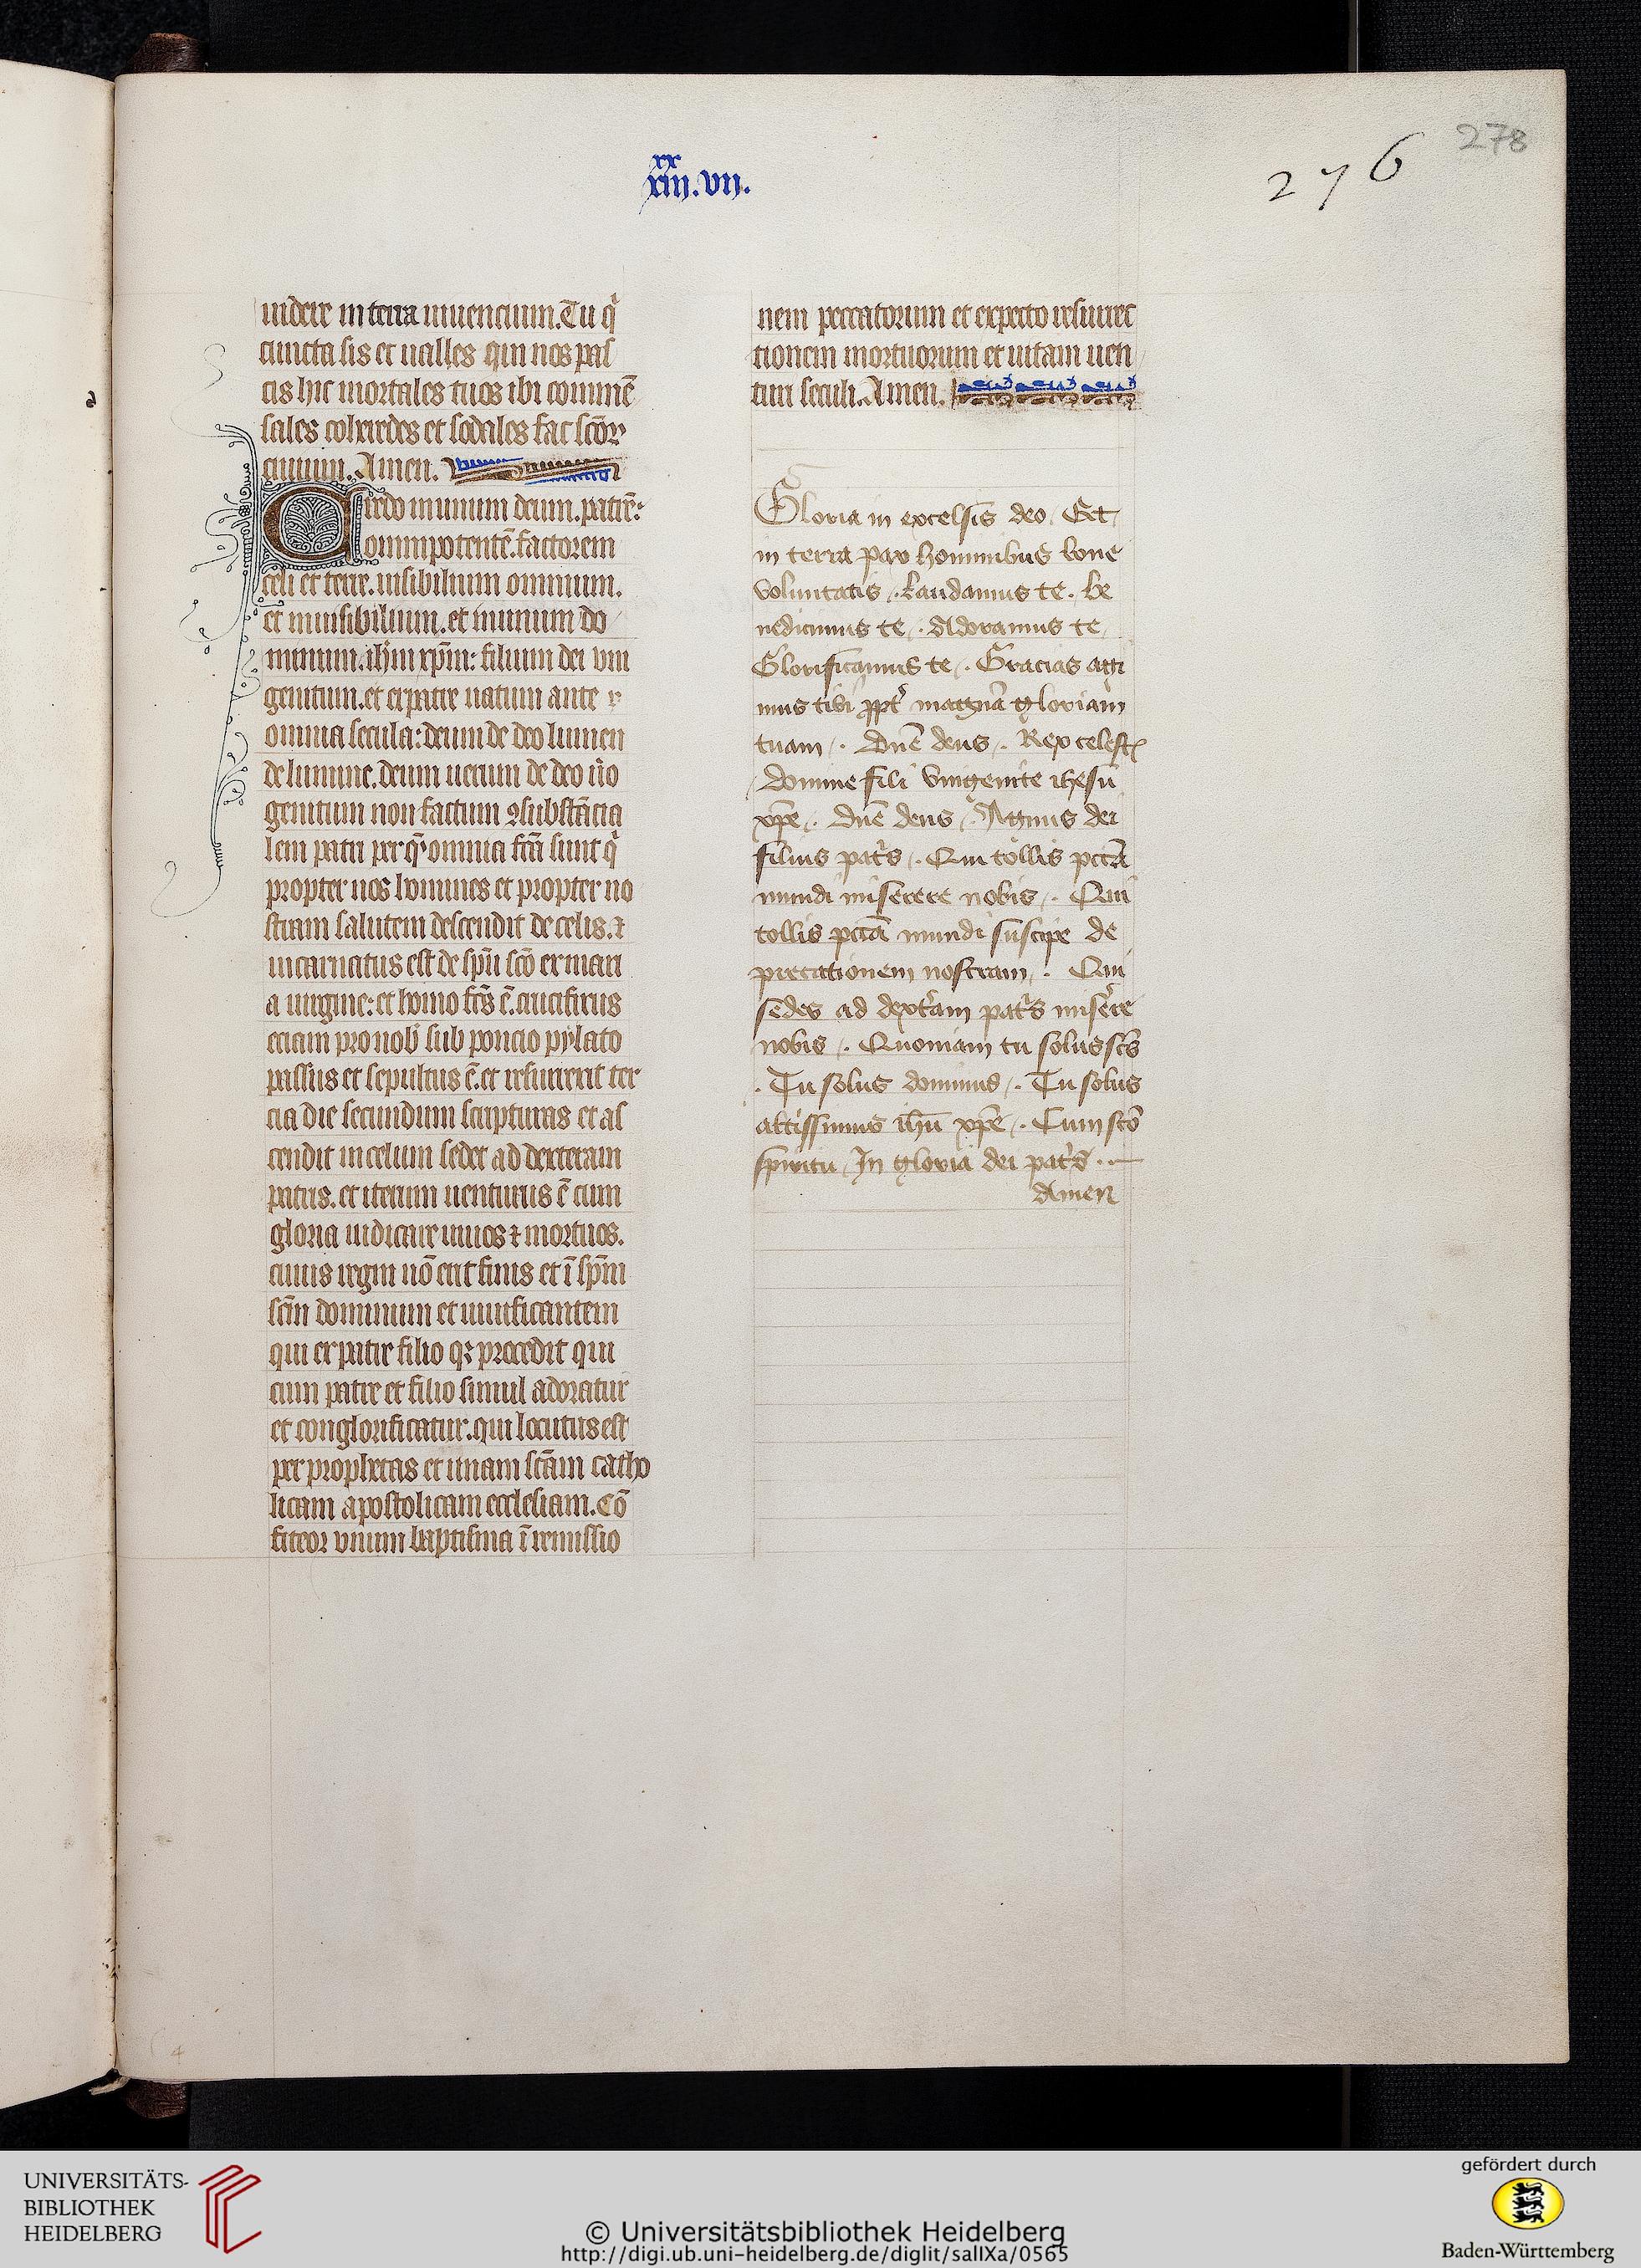 278
276
xx
xiii.vii.
uidere in terra uiuencium. Tu q̇
cuncta sis et ualles qui nos pas
cis hic mortales tuos ibi commē
sales coheredes et sodales fac scōꝝ
ciuium. Amen.
Credo in unum deum. patrē:
omnipotentē. factorem
celi et terre. uisibilium omnium.
et inuisibilium. et in unum do
minum. ihm̄ xp̄m: filium dei vni
genitum. et ex patre natum ante
omnia secula: deum de deo lumen
de lumine. deum uerum de deo ūo
genitum non factum ꝯsubstācia
lem patri per q̄ omnia fc̄a sunt q̇
propter nos homines et propter no
stram salutem descendit de celis. ⁊
incarnatus est de spū scō ex mari
a uirgine: et homo fc̄s ē. crucifixus
eciam pro nob̄ sub poncio pylato
passus et sepultus ē. et resurrexit ter
cia die secundum scripturas et as
cendit in celum sedet ad dexteram
patris. et iterum uenturus ē cum
gloria iudicare uiuos ⁊ mortuos.
cuius regni nō erit finis et ī spm̄
scm̄ dominum et uiuificantem
qui ex patre filio qꝫ procedit qui
cum patre et filio simul adoratur
et conglorificatur. qui locutus est
per prophetas et unam scām catho
licam apostolicam ecclesiam. Cō
fiteor vnum baptisma ī remissio
nem peccatorum et expecto resurrec
tionem mortuorum et uitam uen
turi seculi. Amen.
Gloria in excelsis deo. Et
in terra pax hominibus bone
voluntatis. Laudamus te. be
nedicimus te. Adoramus te
Glorificamus te. Gracias agi
mus tibi ꝓpt̄ magnā gloriam
tuam. Dn̄e deus. Rex celest̄
Domine fili vnigenite ihesu
xp̄e. Dn̄e deus. Agnus dei
filius pat̄s. Qui tollis pctā
mundi miserere nobis. Qui
tollis pctā mundi suscipe de
precationem nostram. Qui
sedes ad dext̄am pat̄s mise̾re
nobis. Quoniam tu solus scs̄
. Tu solus dominus. Tu solus
altissimus ihū xp̄e. Cum scō
spiritu In gloria dei pat̄s.
Amen
UNIVERSITÄTS-
BIBLIOTHEK
HEIDELBERG
© Universitätsbibliothek Heidelberg
http://digi.ub.uni-heidelberg.de/diglit/salIXa/0565
gefördert durch
Baden-Württemberg